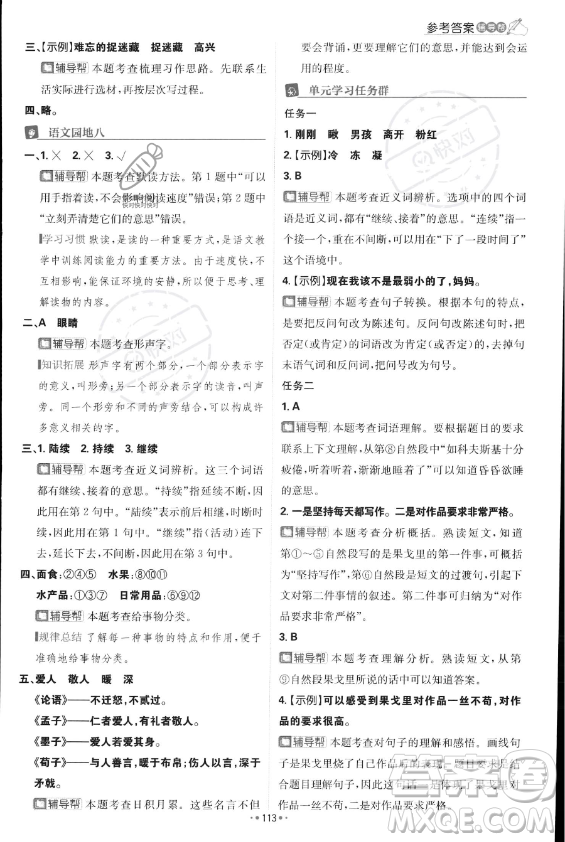 参考答案 辅导帮
三、【示例】难忘的捉迷藏 捉迷藏 高兴
辅导帮 本题考查梳理习作思路。先联系生
活实际进行选材，再按层次写过程。
四、略。
语文园地八
一、1.× 2.× 3.√
辅导帮 本题考查默读方法。第1题中“可以
用手指着读，不会影响阅读速度”错误；第2题中
“立刻弄清楚它们的意思”错误。
学习习惯 默读，是一种重要方式，是语文教学
中训练阅读能力的重要方法。由于速度快，不
互相影响，能保证环境的安静，所以便于思考、理
解读物的内容。
二、A 眼睛
辅导帮 本题考查形声字。
知识拓展 形声字有两个部分，一个部分表示字
的意义，叫形旁；另一个部分表示字的读音，叫声
旁。同一个形旁和不同的声旁结合，可以构成许
多意义相关的字。
三、1.陆续 2.持续 3.继续
辅导帮 本题考查近义词辨析。这三个词语
都有继续、接连的意思。“持续”指延续不断，用
在第2句中。“陆续”表示有先有后，时断时续，
用在第1句中。“继续”指（活动）连下
去，延长下去，不间断，用在第3句中。
四、面食：②④⑤ 水果：⑧⑩⑪
水产品：①③⑦ 日常用品：⑥⑨⑫
辅导帮 本题考查给事物分类。
规律总结 了解每一种事物的特点和作用，
就能很好地给事物归类。
五、爱人 敬人 暖 深
《论语》——不迁怒，不贰过。
《孟子》——仁者爱人，有礼者敬人。
《墨子》——爱人若爱其身。
《荀子》——与人善言，暖于布帛；伤人以言，深于
矛戟。
辅导帮 本题考查日积月累。这些名言不但
要会背诵，更要理解它们的意思，并能学会运
用的程度。
单元学习任务群
任务一
1.刚刚 瞅 男孩 离开 粉红
2.【示例】冷 冻 凝
3.B
辅导帮 本题考查近义词辨析。选项中的四个词
语意思相近，都有“继续、接连”的意思。“连续”指一
个接一个，重在不间断，可以反复进行，因此可以用于
这个语境中。
4.【示例】现在我该不是最弱小的了，妈妈。
辅导帮 本题考查句子转换。根据本句的特点，
是要把反问句改为陈述句。反问句改陈述句，把
否定（或肯定）的词语改为肯定（或否定）的，去掉句
末语气词和反问词，把问号改为句号。
任务二
1.A
辅导帮 本题考查词语理解。根据题目的要求
联系上下文理解，从第⑧自然段中“如科夫斯基十分
疲倦，听着听着，渐渐地睡着了”可以看出昏昏欲睡
的意思。
2.一是坚持每天都写作。二是对作品要求非常严格。
辅导帮 本题考查整体感知。熟读短文，知道
第①～⑤自然段写的是果戈里的第一件事，可概括
为“坚持写作”。第⑥自然段是短文的过渡句，引起
下文对第二件事情的叙述。第二件事可归纳为“对作
品要求非常严格”。
3.B
辅导帮 本题考查理解分析。熟读短文，知道第
⑤自然段果戈里所说的话中可知答案。
4.【示例】可以感受到果戈里对作品一丝不苟，对作
品的要求很高。
辅导帮 本题考查对句子的理解和感悟。画线句
结合题目要求理解，体会到果戈里对作品一丝不苟，
·113·
快对
快对快对快对
作业精灵